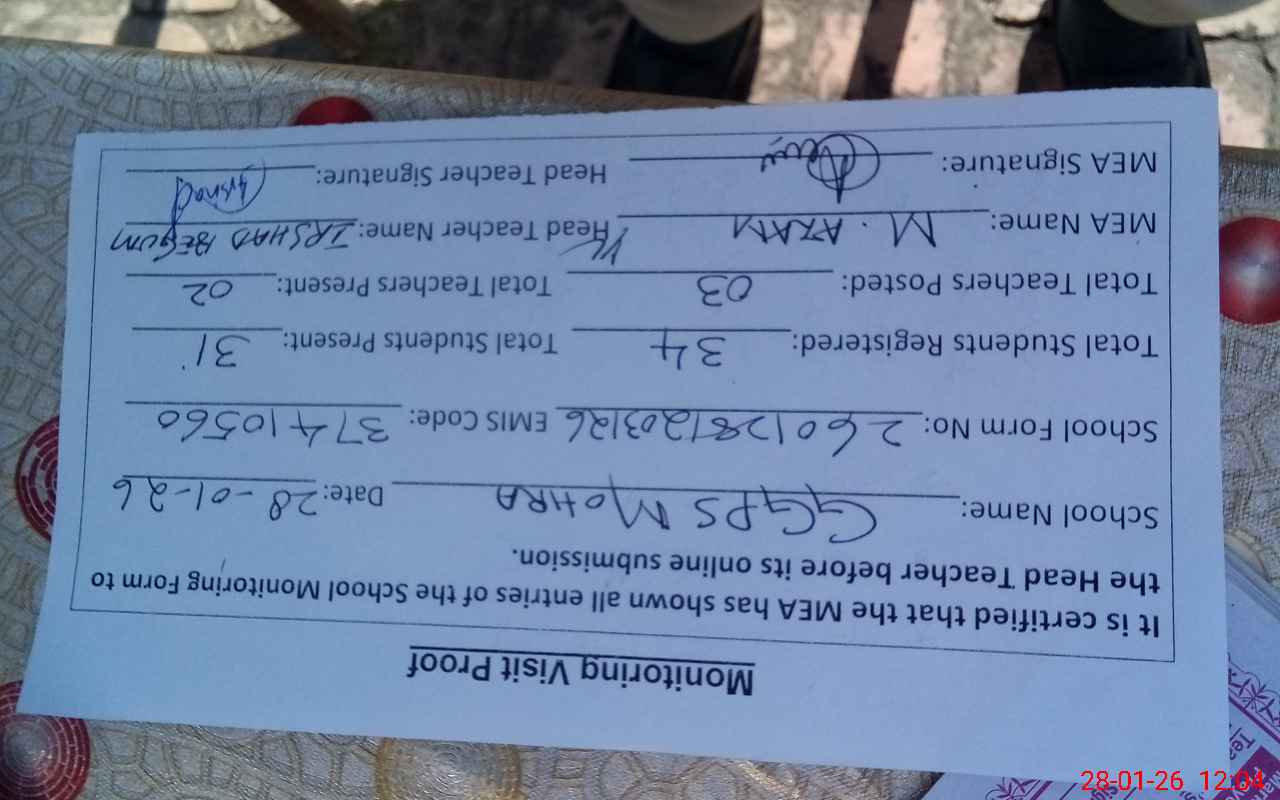 Monitoring Visit Proof
It is certified that the MEA has shown all entries of the School Monitoring Form to
the Head Teacher before its online submission.
School Name: GGPS MOHRA Date: 28-01-26
School Form No: 2601281203126 EMIS Code: 37410560
Total Students Registered: 34 Total Students Present: 31
Total Teachers Posted: 03 Total Teachers Present: 02
MEA Name: M. AZAM Head Teacher Name: IRSHAD BEGUM
MEA Signature: Head Teacher Signature: Irshad
28-01-26 12:04